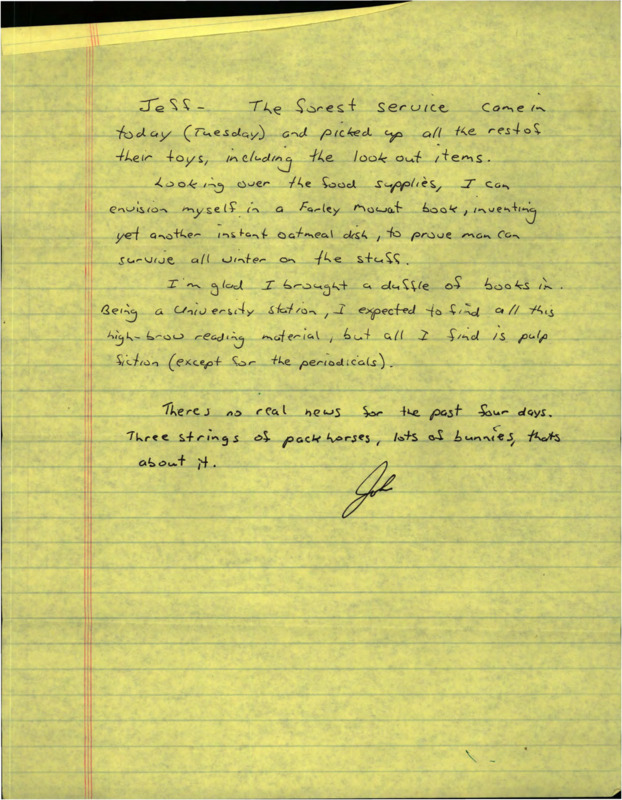 Jeff- The forest service came in
today (Tuesday) and picked up all the rest of
their toys, including the look out items.
Looking over the food supplies, I can
envision myself in a Farley Mowat book, inventing
yet another instant oatmeal dish, to prove man can
survive all winter on the stuff.
I'm glad I brought a duffle of books in.
Being a University station, I expected to find all this
high-brow reading material, but all I find is pulp
fiction (except for the periodicals).
Theres no real news for the past four days.
Three strings of packhorses, lots of bunnies, thats
about it.
John